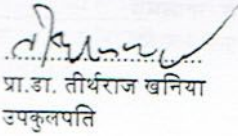 प्रा.डा. तीर्थराज खनिया
उपकुलपति